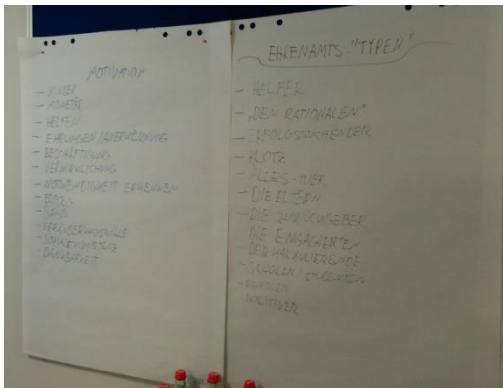 MOTIVATION
- KINDER
- HELFEN
- EHRUNGEN / ANERKENNUNG
- BESCHÄFTIGUNG
- VERWIRKLICHUNG
- NOTWENDIGKEIT ERKENNEN
- ERFOLG
- SPAß
- DANKBARKEIT
EHRENAMTS-"TYPEN"
- HELFER
- „DEN RATIONALEN"
- ERFOLGSSUCHENDER
- KLOTZ
- ALLES-
- DIE ELTERN
- DIE ZURÜCKGEBER
DIE ENGAGIERTEN
DER KALKULIERENDE
- SCHÜLER / STUDENTEN
- RENTNER
- POLITIKER